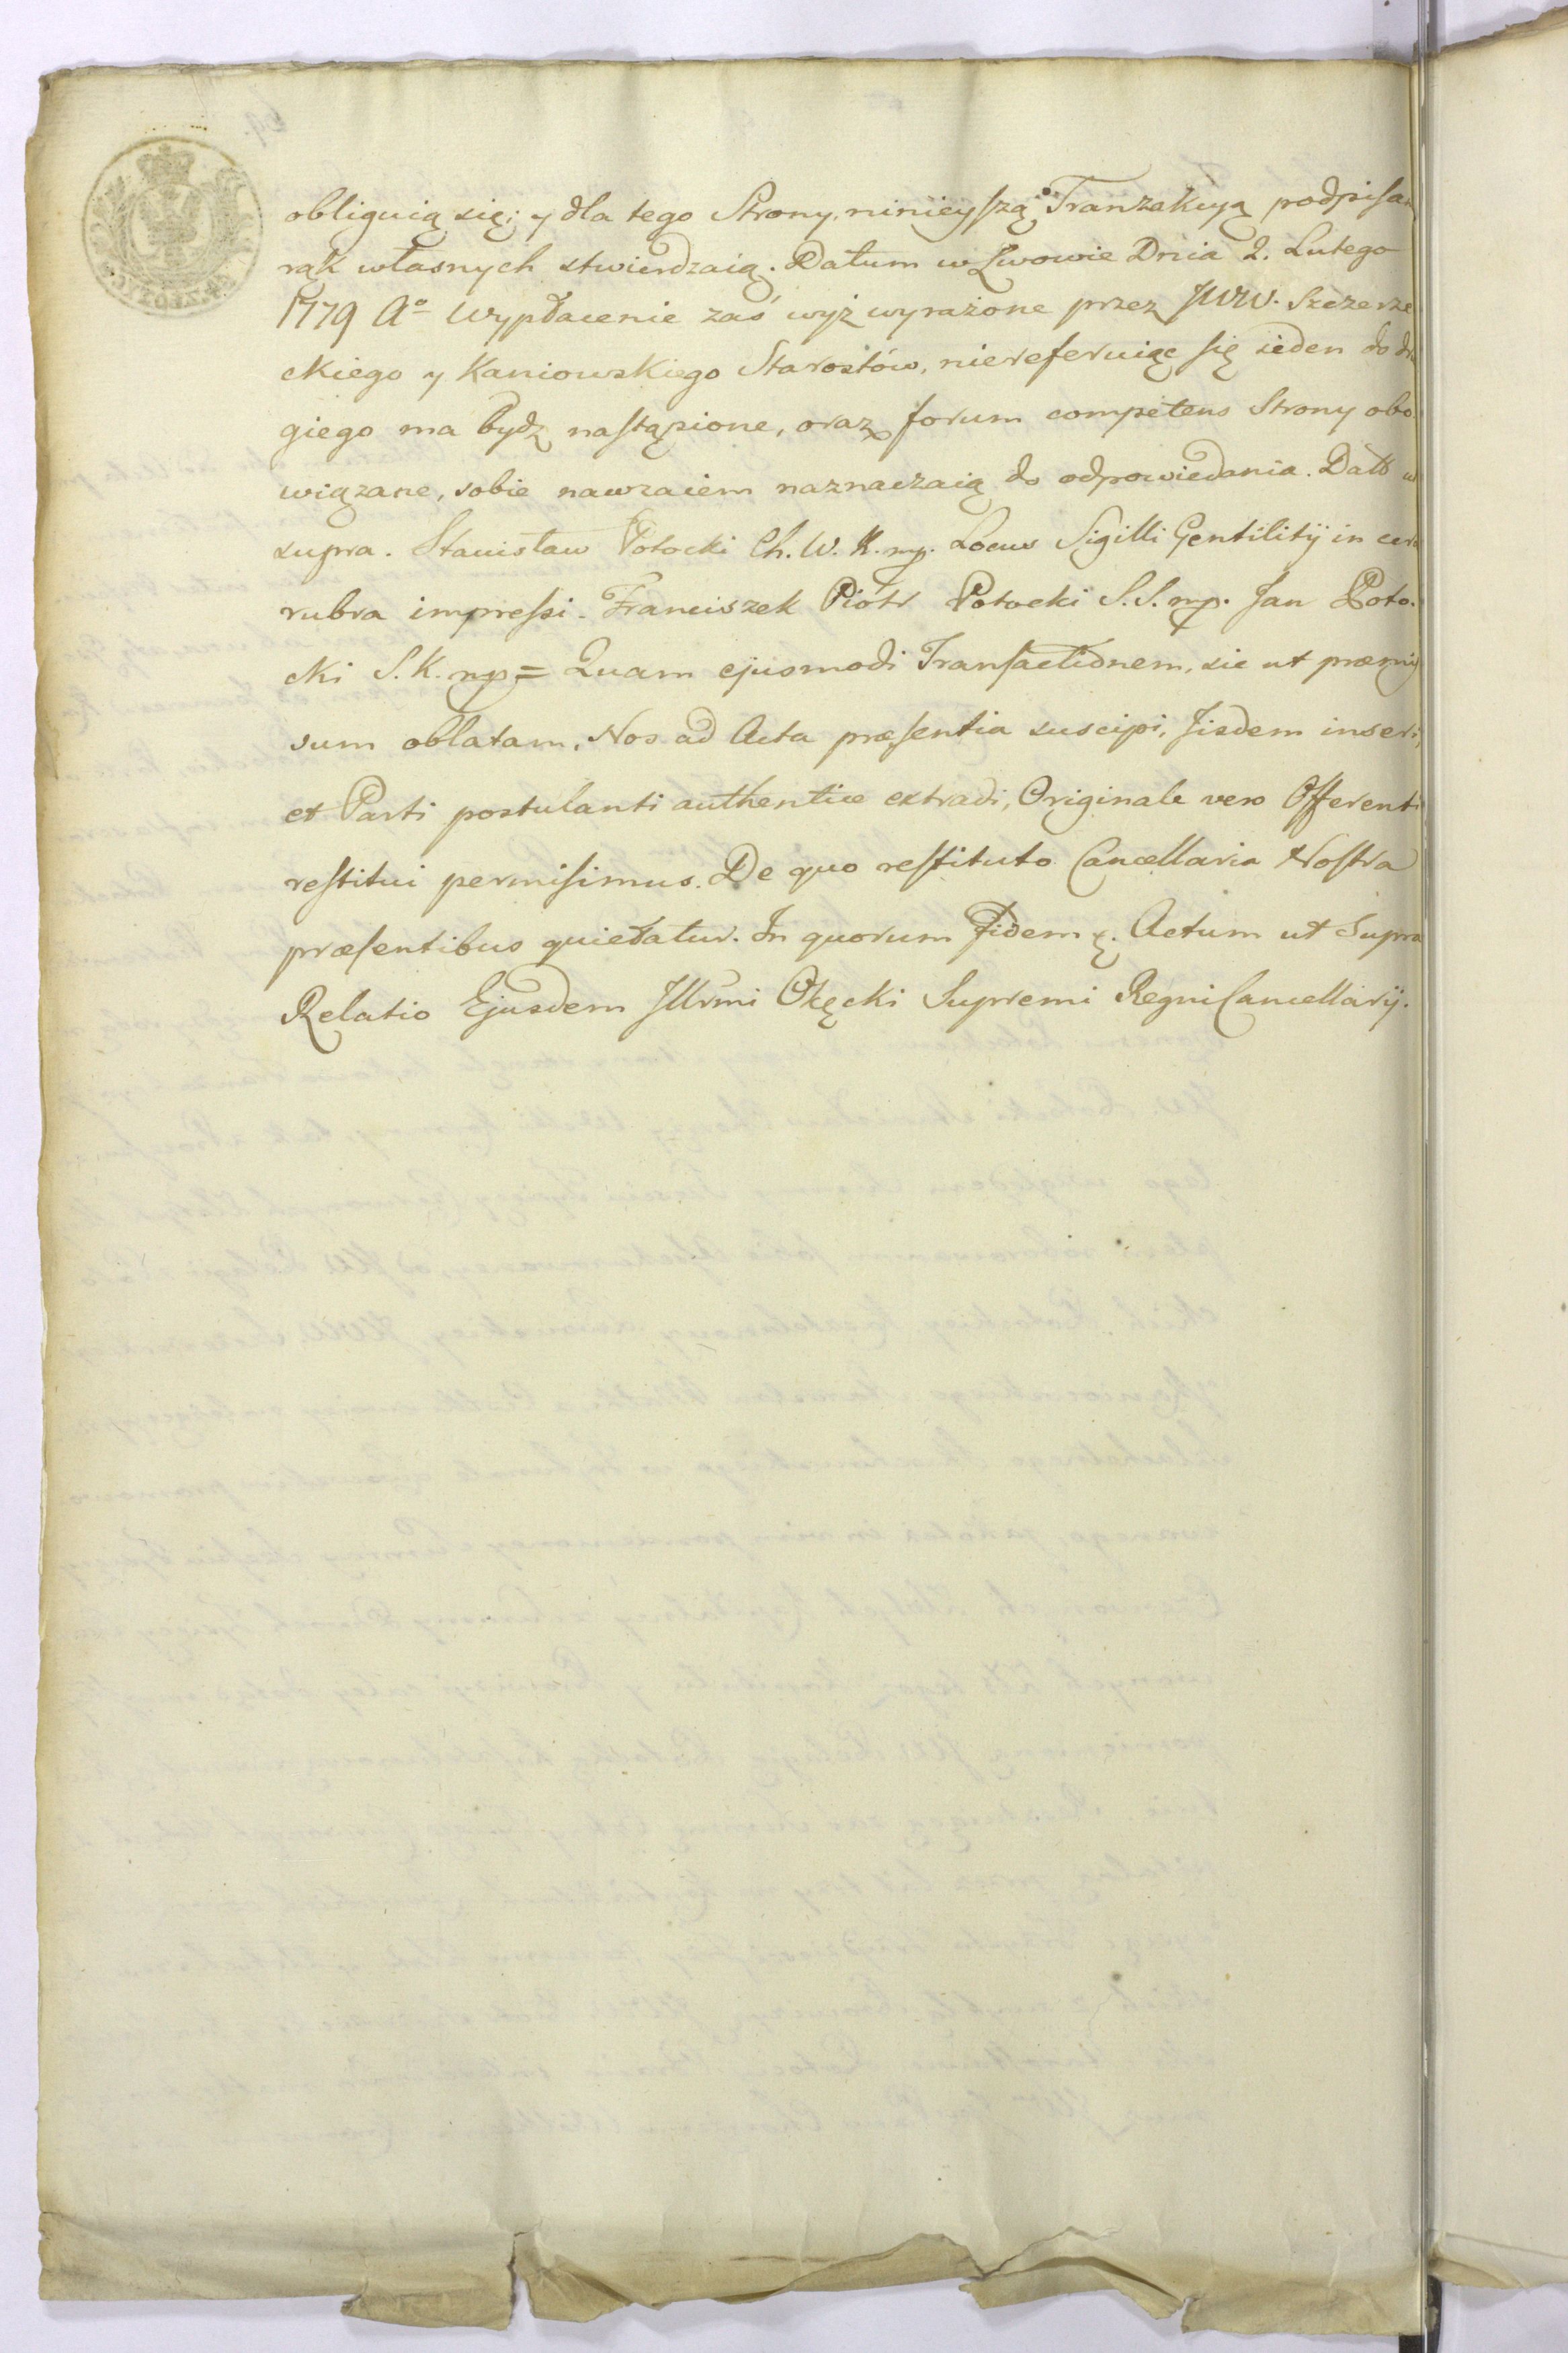 obliguią się; y dla tego Strony, ninieyszą Tranzakcyą podpisa
rąk własnych stwierdzaią. Datum w Lwowie Dnia 2. Lutego
1779 Aº Wypłacenie zaś wyż wyrażone przez JWW. Szczerze
ckiego y Kaniowskiego Starostów, niereferuiąc się ieden do dru
giego ma bydz nastąpione, oraz forum competens Strony obo
wiązane, sobie nawzaiem naznaczaią do odpowiedania. Datt u
supra. Stanisław Potocki Ch. W. K. mp. Locus Sigilli Gentilitij in cera
rubra impressi. Franciszek Piotr Potocki S. S. mp. Jan Poto.
cki S. K. mp = Quam ejusmodi Transactionem, sic ut præmis
sum oblatam, Nos ad Acta præsentia suscipi, Jisdem inseri,
et Parti postulanti authentice extradi, Originale vero Offerenti
restitui permisimus. De quo restituto Cancellaria Nostra
præsentibus quietatur. In quorum Fidem &. Actum ut Supra
Relatio Ejusdem Jllrmi Okęcki Supremi Regni Cancellarij.